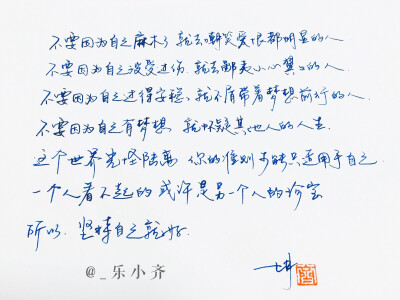 不要因为自己麻木了 就去嘲笑爱恨都明显的人
不要因为自己没受过伤 就去鄙夷小心翼翼的人
不要因为自己过得安稳 就不屑带着梦想前行的人
不要因为自己有梦想 就怀疑其他人的人生
这个世界光怪陆离 你的准则可能只适用于自己
一个人看不起的 或许是另一个人的珍宝
所以 坚持自己就好
@_乐小齐